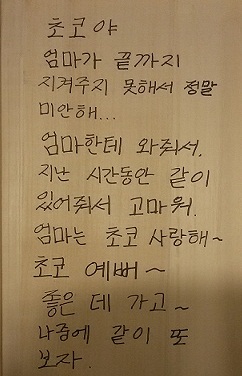 초코야
엄마가 끝까지
지켜주지 못해서 정말
미안해...
엄마한테 와줘서.
지난 시간동안 같이
있어줘서 고마워.
엄마는 초코 사랑해~
초코 예뻐~
좋은 데 가고~
나중에 같이 또
보자.